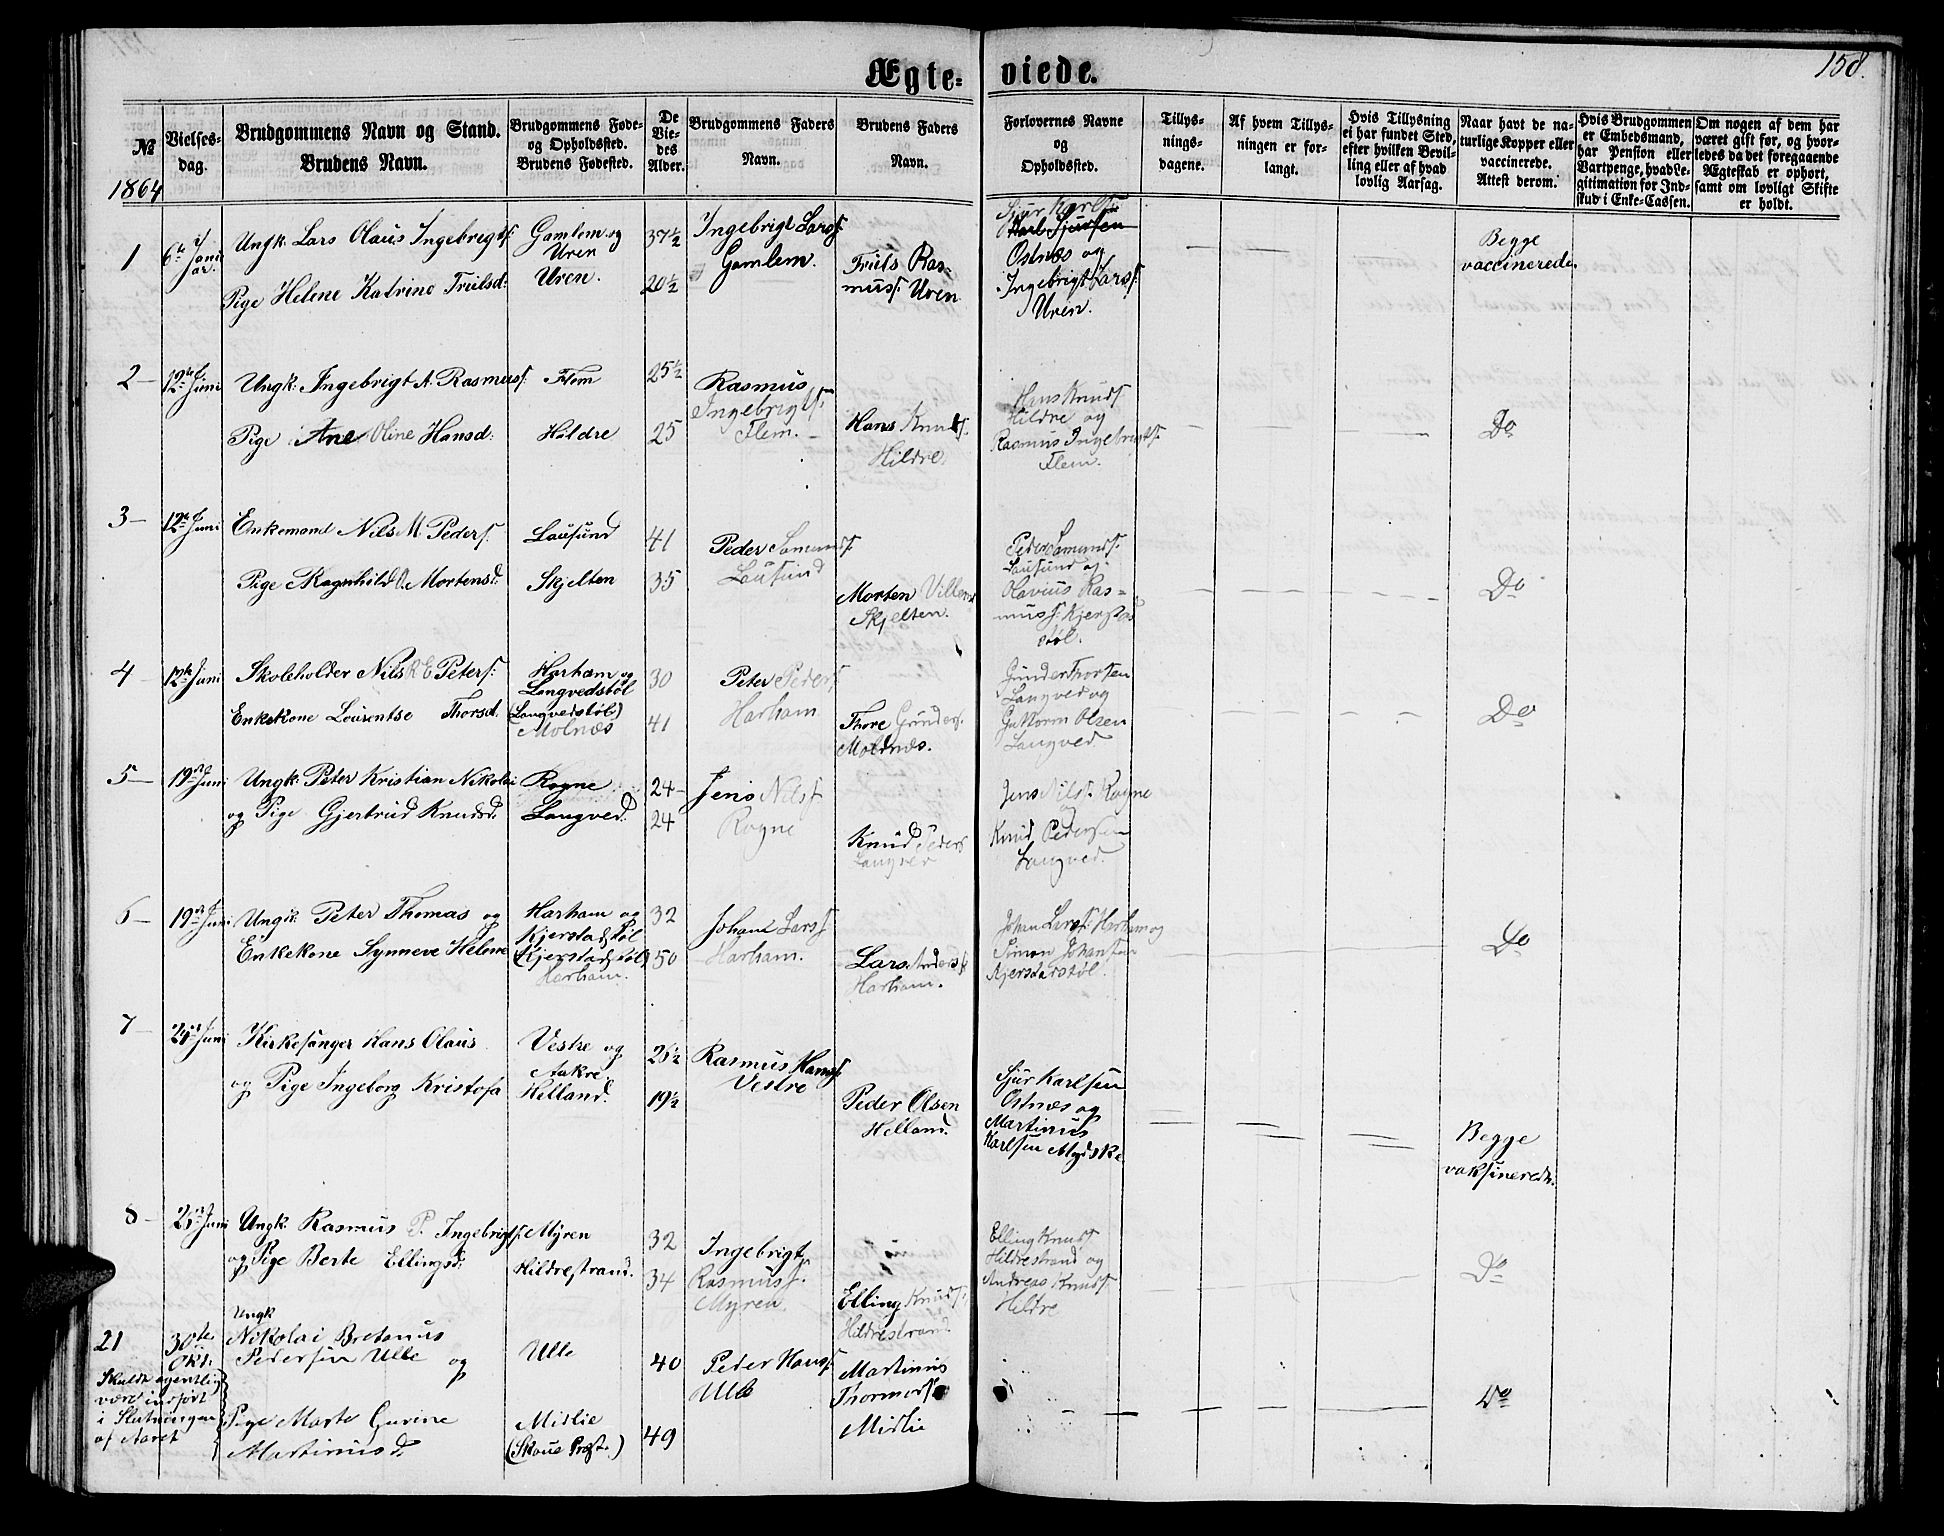 158.
Ægte-viede.
№ 1864
Vielses-dag.
Brudgommens Navn og Stand. Brudens Navn.
Brudgommens Føde- og Opholdssted. Brudens Fødested.
De Viedes Alder.
Brudgommens Faders Navn.
Brudens Faders Navn.
Forlovernes Navne og Opholdssted.
Tillysningsdagene.
Af hvem Tillysningen er forlangt.
Hvis Tillysning ei har fundet Sted, efter hvilken Bevilling eller af hvad lovlig Aarsag.
Naar havt de naturlige Kopper eller vaccinerede. Attest derom.
Hvis Brudgommen er Embedsmand, har Pension eller Vartpenge, hvad Legitimation for Indskud i Enke-Cassen.
Om nogen af dem har været gift før, og hvorledes da det foregaaende Ægteskab er ophørt, samt om lovligt Skifte er holdt.
1
6te Januar
Ungk. Lars Olaus Ingebrigts.
Pige Helene Katrine Trulsd:
Gamlem og
Uren
Uren.
37½
20½
Ingebrigt Larss.
Gamlem.
Truls Ras-
muss. Uren
Sjur Karls.
Karl Sjursen
Ostnæs og
Ingebrigt Larss.
Uren.
Begge
vaccinerede.
2
12te Juni
Ungk: Ingebrigt A. Rasmuss:
Pige Ane Oline Hansd:
Flem
Hildre
25½
25
Rasmus
Ingebrigts.
Flem.
Hans Knuds.
Hildre.
Hans Knuds.
Hildre og
Rasmus Ingebrigts.
Flem.
Do
3
12te Juni
Enkemand Nils M. Peders.
Pige Ragnhild O. Mortensd:
Lausund
Skjelten
41
35
Peder Samunds.
Lausund
Morten Villems.
Skjelten.
Peder Samunds.
Lausund og
Olavius Ras-
muss. Kjerstad
støl.
Do
4
12te Juni
Skoleholder Nils R E Peters:
Enkekone Lourentse Thorsd.
Harham og
Langvedstøl
(Langvedstøl)
Molnæs
30
41
Peter Peders.
Harham
Thore Gunders.
Moldnæs.
Gunder Thorsen
Langved og
Guttorm Olsen
Langved
Do
5
19de Juni
Ungk: Peter Kristian Nikolai
og Pige Gjertrud Knudsd.
Rogne
Langved.
24
24
Jens Nilss.
Rogne
Knud Peders.
Langved
Jens Nilss. Rogne
og
Knud Pedersen
Langved.
6
19de Juni
Ungk: Peter Thomas og
Enkekone Synneve Helene
Harham og
Kjerstadstøl
(Kjerstadstøl)
Harham.
32
50
Johan Larss.
Harham.
Lars Anders.
Harham.
Johan Larss. Harham og
Simon Johansen
Kjerstadstøl.
Do
7
Juni
Kirkesanger Hans Olaus
og Pige Ingeborg Kristofa
Vestre og
Aakre.
Helland.
26½
19½
Rasmus Hanss.
Vestre
Peder Olsen
Helland.
Sjur Karlsen
Ostnæs og
Martinus
Karlsen Alydske
Begge
vaksinerede.
8
Juni
Ungk. Rasmus P. Ingebrigts.
og Pige Berte Ellingsd.
Myren
Hildrestrand.
32
34
Ingebrigt
Rasmuss.
Myren.
Elling Knuds.
Hildrestrand.
Elling Knuds.
Hildrestrand og
Andreas Knuds.
Hildre
Do
21
Skulde egentlig
været indført
i Slutningen
af Aaret
30te
Okt.
Ungk
Nikolai Bretanus
Pedersen Ulle og
Pige Marte Gurine
Martinusd.
Ulle
Midlie
(Skoue Præst.)
40
49
Peder Hans.
Ulle
Martinus
Thormods.
Midlie
Do